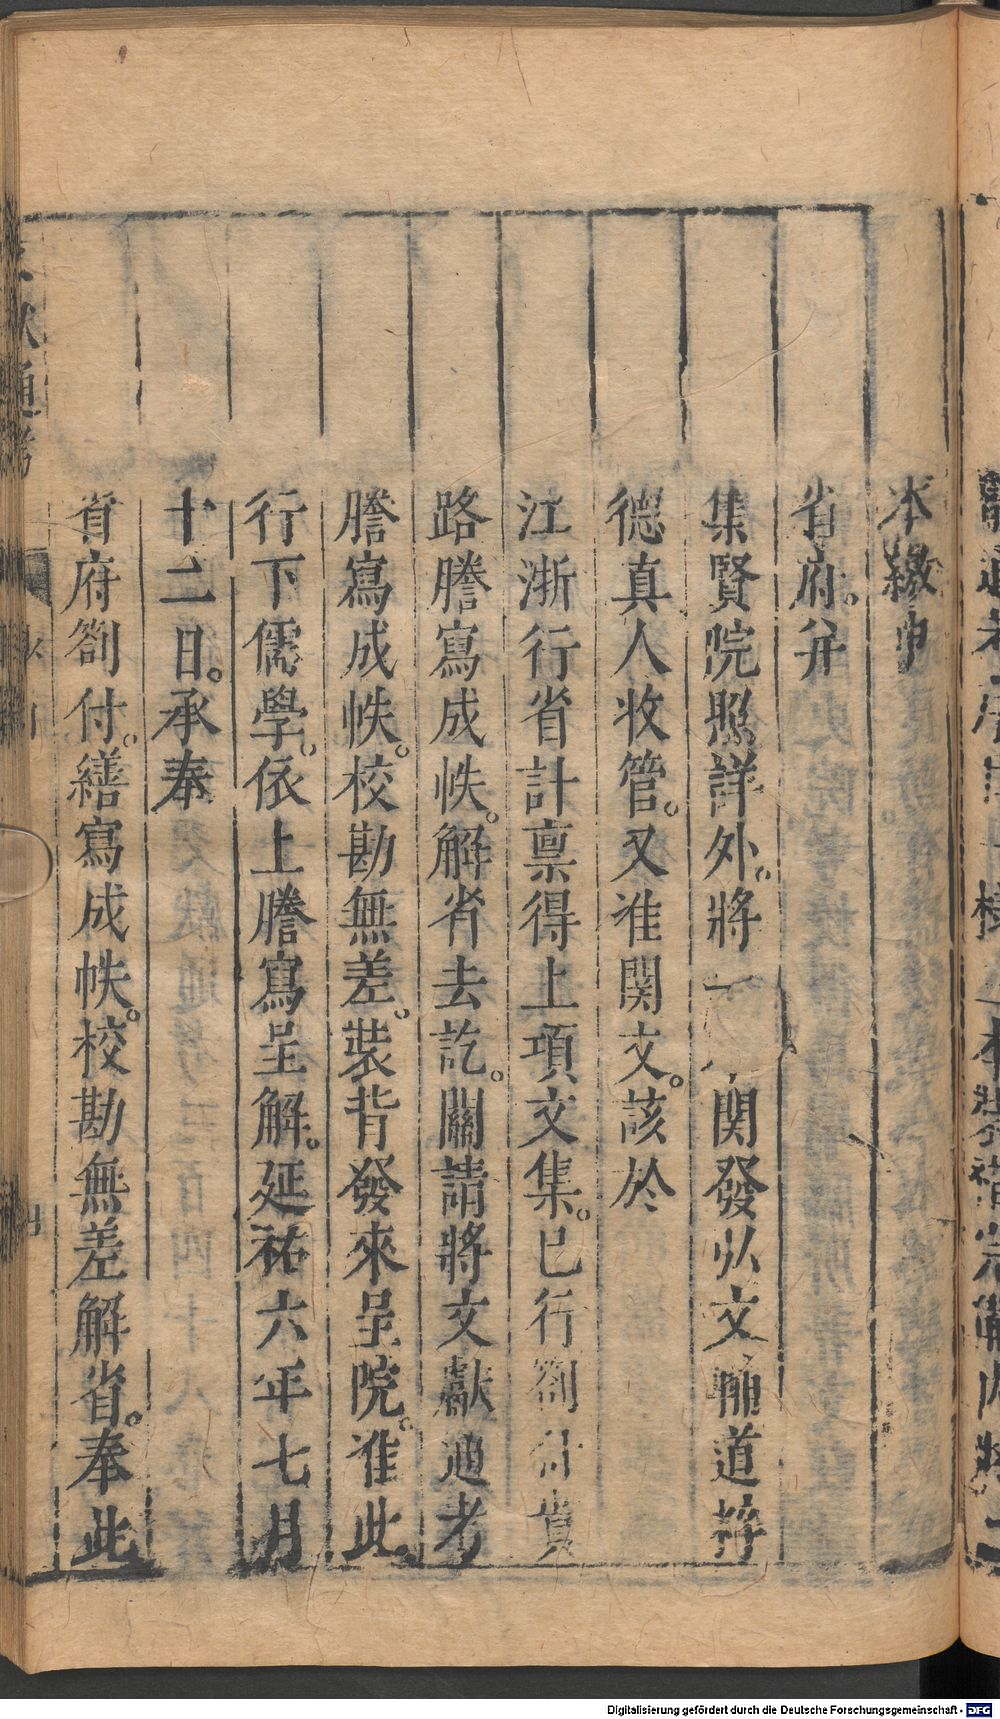 本繳申
省府。并
集賢院照詳外。將一 関發弘文輔道粹
德真人收管。又准関文。該於
江浙行省計禀得上項文集。已行劄付貴
路謄寫成帙。解省去訖。關請將文獻通考
謄寫成帙。校勘無差。裝背發來呈院。准此
行下儒學。依上謄寫呈解。延祐六年七月
十二日。承奉
省府劄付。繕寫成帙。校勘無差解省。奉此
Digitalisierung gefördert durch die Deutsche Forschungsgemeinschaft - DFG